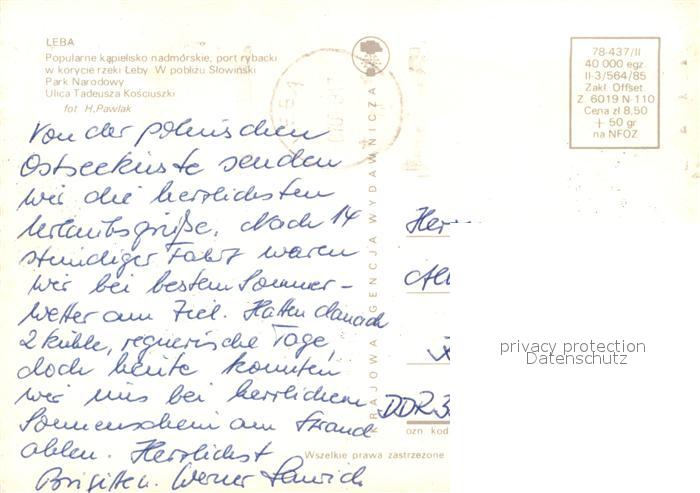 ŁEBA
Popularne kąpielisko nadmorskie, port rybacki
w korycie rzeki Łeby. W pobliżu Słowiński
Park Narodowy
Ulica Tadeusza Kościuszki
fot H. Pawlak
Von der polnischen
Ostseeküste senden
wir die herzlichsten
Urlaubsgrüße. Nach 14
stündiger Fahrt waren
wir bei bestem Sommer-
wetter am Ziel. Hatten danach
2 kühle, regnerische Tage,
doch heute konnten
wir uns bei herrlichem
Sonnenschein am Strand
aalen. Herzlichst
Werner
KRAJOWA AGENCJA WYDAWNICZA
78-437/II
40 000 egz.
II-3/564/85
Zakł. Offset
Z. 6019 N-110
Cena zł 8,50
+ 50 gr
na NFOZ
Her
DDR
ozn. kod
Wszelkie prawa zastrzeżone
privacy protection
Datenschutz